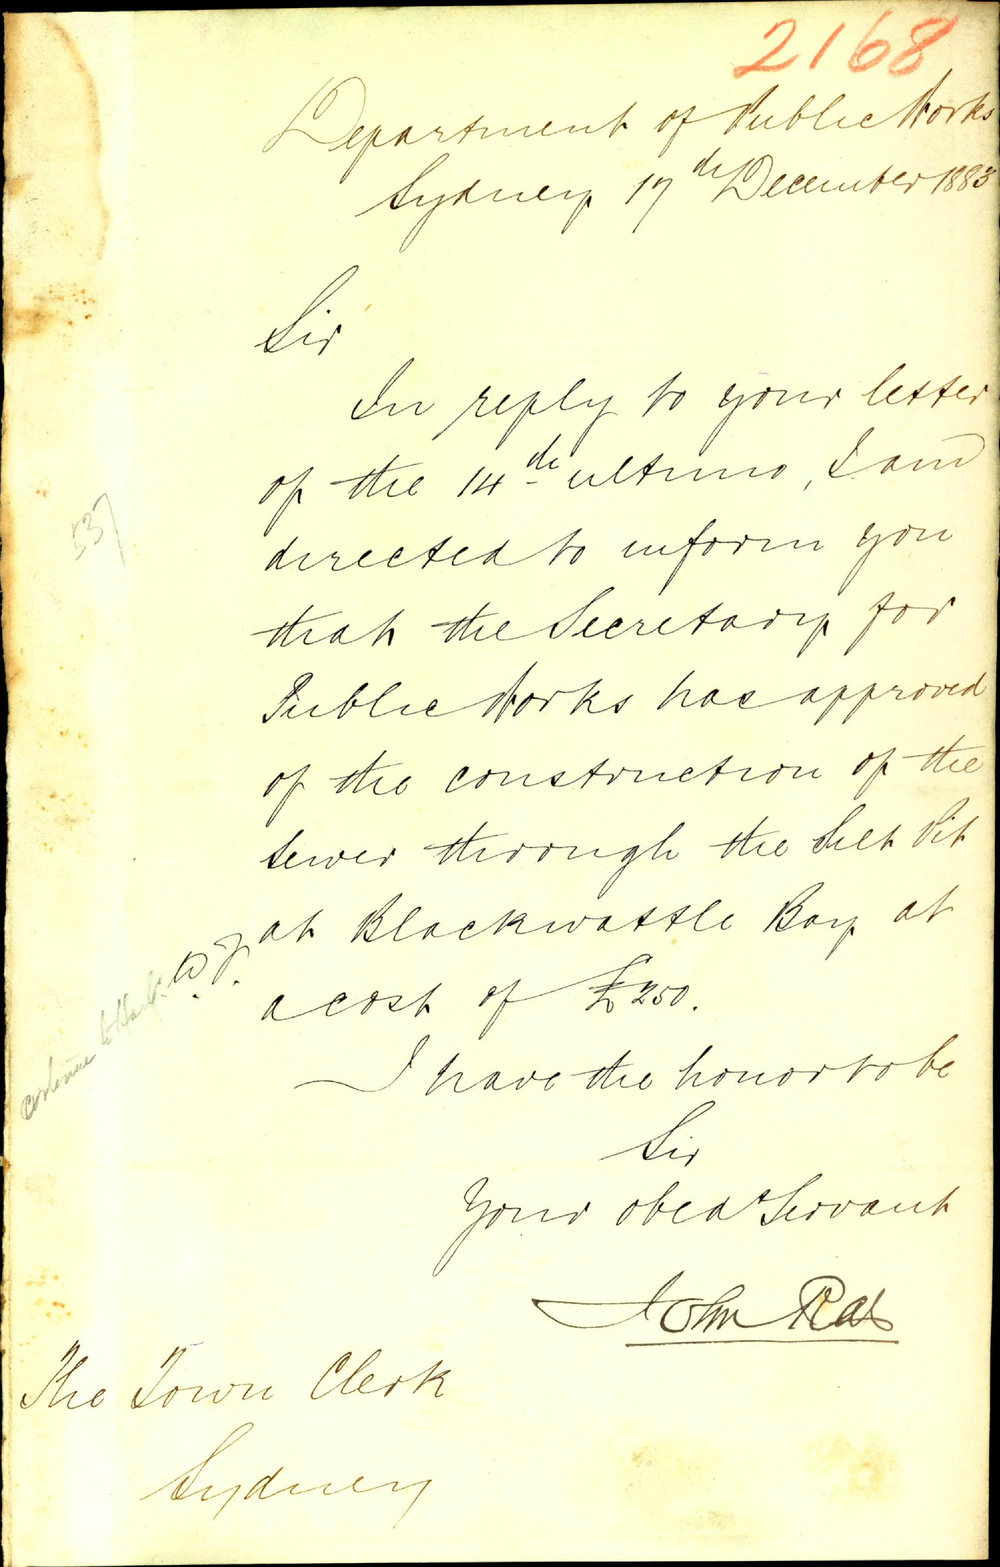 2168
Department of Public Works
Sydney 17th December 1883
Sir
In reply to your letter
of the 14th ultimo, I am
directed to inform you
that the Secretary for
Public Works has approved
of the construction of the
sewer through the Silt Pit
at Blackwattle Bay at
a cost of £250.
I have the honor to be
Sir
Your obedt Servant
John Rae
The Town Clerk
Sydney
537